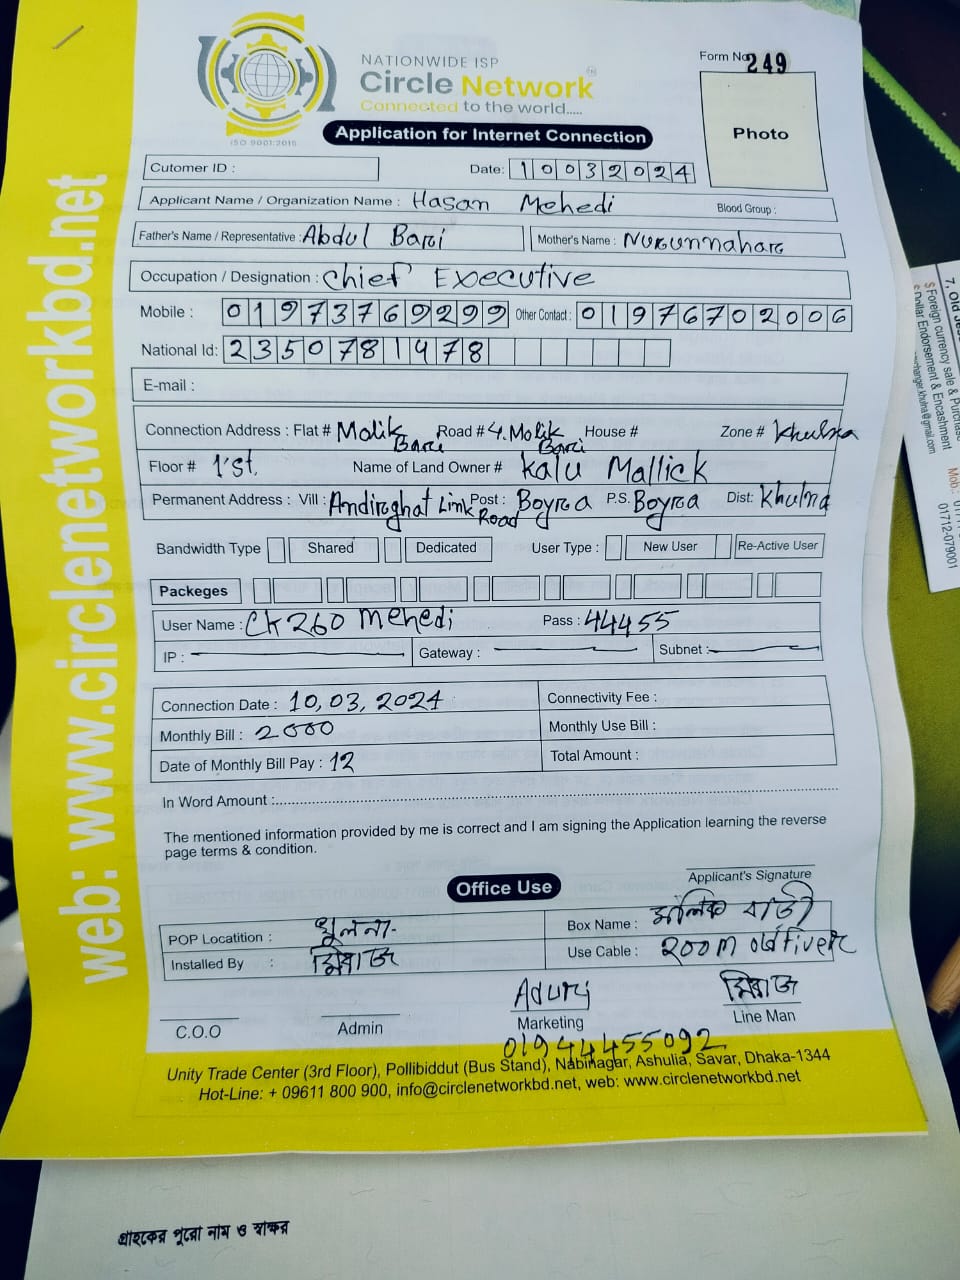 NATIONWIDE ISP
Circle Network
Connected to the world.....
ISO 9001:2015
Form No 249
Photo
Application for Internet Connection
Cutomer ID :
Date: 10032024
Applicant Name / Organization Name : Hasan Mehedi Blood Group :
Father's Name / Representative : Abdul Bari Mother's Name : Nurunnahar
Occupation / Designation : Chief Executive
Mobile : 01973769299 Other Contact : 01976702006
National Id: 2350781978
E-mail :
Connection Address : Flat # Malik Bari Road # 4. Malik Bari House # Zone # Khulna
Floor # 1'st. Name of Land Owner # Kalu Mallick
Permanent Address : Vill : Andirghat Link Road Post : Boyra P.S. Boyra Dist: Khulna
Bandwidth Type Shared Dedicated User Type : New User Re-Active User
Packeges
User Name : CK260 Mehedi Pass : 44455
IP : Gateway : Subnet :
Connection Date : 10,03,2024 Connectivity Fee :
Monthly Bill : 2000 Monthly Use Bill :
Date of Monthly Bill Pay : 12 Total Amount :
In Word Amount :
The mentioned information provided by me is correct and I am signing the Application learning the reverse
page terms & condition.
Applicant's Signature
Office Use
POP Locatition : খুলনা- Box Name : মালিক বাড়ী
Installed By : মিরাজ Use Cable : 200m old
Aduri মিরাজ
C.O.O Admin Marketing Line Man
01944455092
Unity Trade Center (3rd Floor), Pollibiddut (Bus Stand), Nabinagar, Ashulia, Savar, Dhaka-1344
Hot-Line: + 09611 800 900, info@circlenetworkbd.net, web: www.circlenetworkbd.net
web: www.circlenetworkbd.net
গ্রাহকের পুরো নাম ও স্বাক্ষর
7, Old
$ Foreign currency sale & Purchase
Dollar Endorsement & Encashment
changer.khulna@gmail.com
Mob:
01712-079001